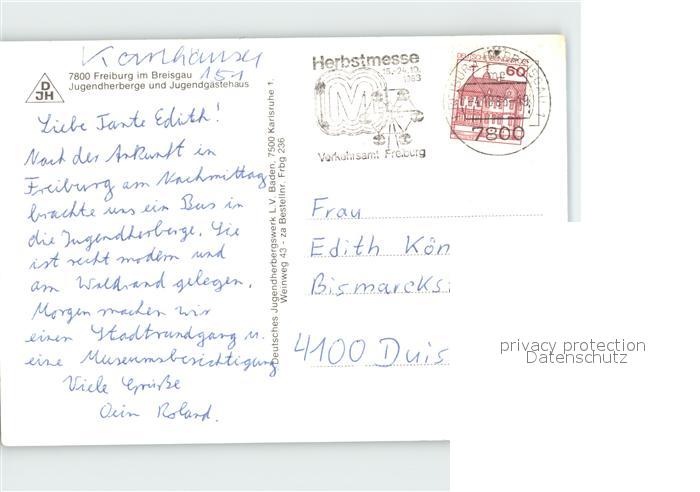 Kornhäuser
151
D
JH
7800 Freiburg im Breisgau
Jugendherberge und Jugendgästehaus
Liebe Tante Edith!
Nach der Ankunft in
Freiburg am Nachmittag
brachte uns ein Bus in
die Jugendherberge. Sie
ist recht modern und
am Waldrand gelegen.
Morgen machen wir
einen Stadtrundgang u.
eine Museumsbesichtigung
Viele Grüße
Dein Roland.
Deutsches Jugendherbergswerk L.V. Baden, 7500 Karlsruhe 1,
Weinweg 43 - za Bestellnr. Frbg 236
Herbstmesse
15.-24.10.
1983
M
Verkehrsamt Freiburg
60
7800
Frau
Edith Kön
Bismarcks
4100 Duis
privacy protection
Datenschutz